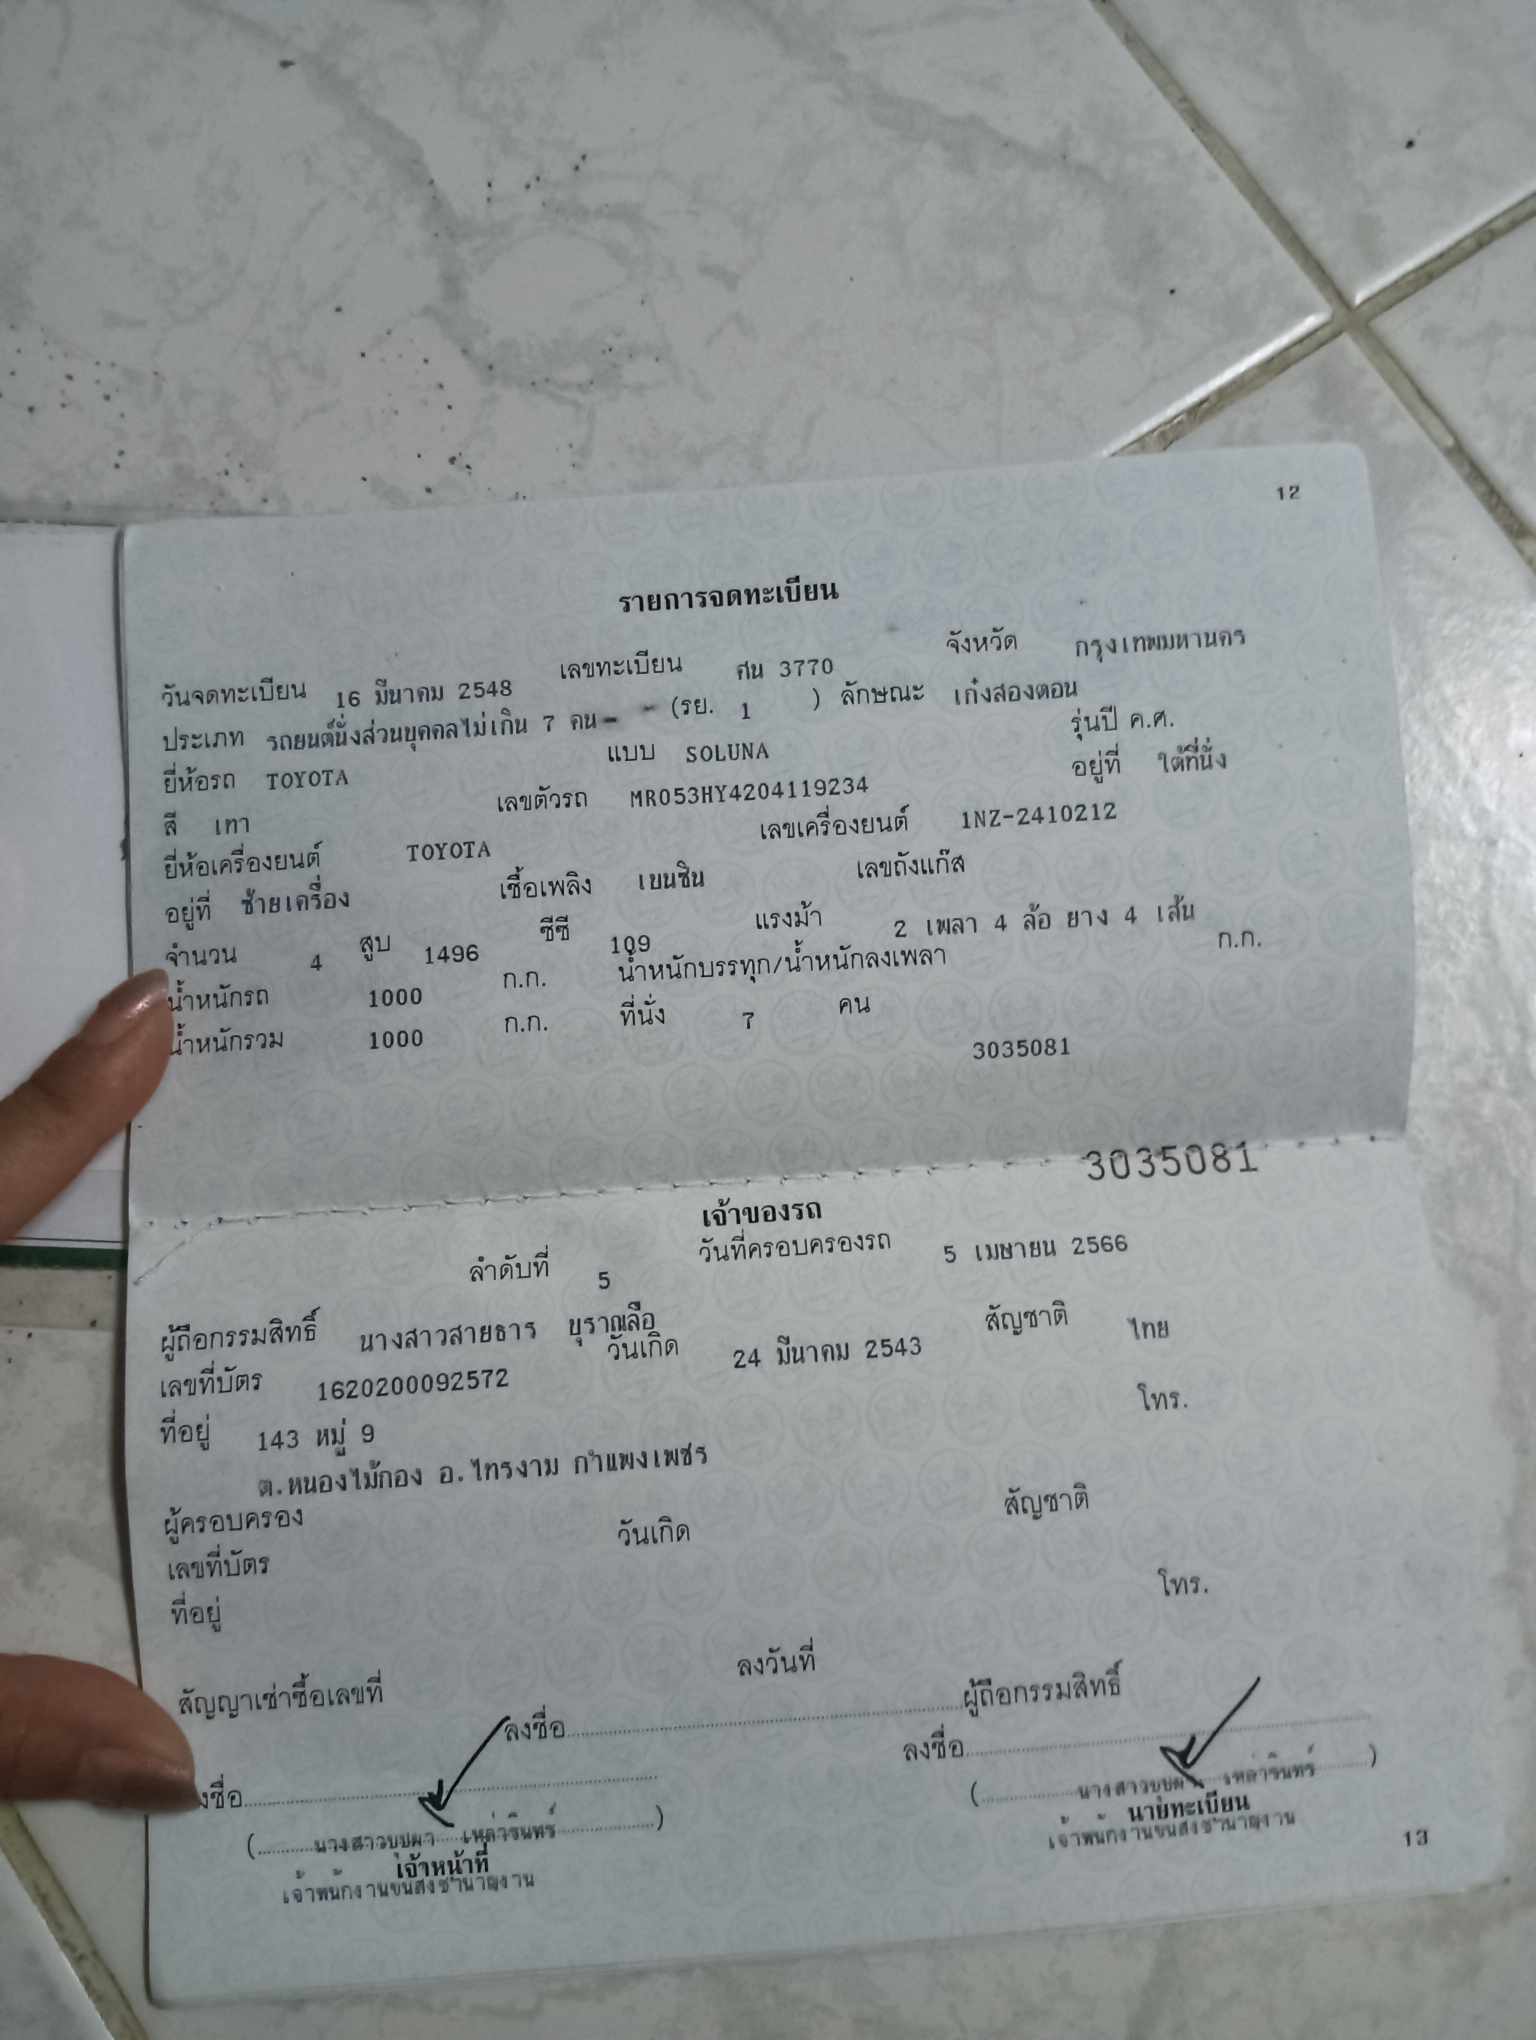 12
รายการจดทะเบียน
วันจดทะเบียน 16 มีนาคม 2548 เลขทะเบียน ศน 3770 จังหวัด กรุงเทพมหานคร
ประเภท รถยนต์นั่งส่วนบุคคลไม่เกิน 7 คน- - (รย. 1 ) ลักษณะ เก๋งสองตอน
ยี่ห้อรถ TOYOTA แบบ SOLUNA รุ่นปี ค.ศ.
สี เทา เลขตัวรถ MR053HY4204119234 อยู่ที่ ใต้ที่นั่ง
ยี่ห้อเครื่องยนต์ TOYOTA เลขเครื่องยนต์ 1NZ-2410212
อยู่ที่ ซ้ายเครื่อง เชื้อเพลิง เบนซิน เลขถังแก๊ส
จำนวน 4 สูบ 1496 ซีซี 109 แรงม้า 2 เพลา 4 ล้อ ยาง 4 เส้น
น้ำหนักรถ 1000 ก.ก. น้ำหนักบรรทุก/น้ำหนักลงเพลา ก.ก.
น้ำหนักรวม 1000 ก.ก. ที่นั่ง 7 คน
3035081
3035081
เจ้าของรถ
ลำดับที่ 5 วันที่ครอบครองรถ 5 เมษายน 2566
ผู้ถือกรรมสิทธิ์ นางสาวสายธาร บุราณลือ
เลขที่บัตร 1620200092572 วันเกิด 24 มีนาคม 2543 สัญชาติ ไทย
ที่อยู่ 143 หมู่ 9 โทร.
ต.หนองไม้กอง อ.ไทรงาม กำแพงเพชร
ผู้ครอบครอง
เลขที่บัตร วันเกิด สัญชาติ
ที่อยู่ โทร.
สัญญาเช่าซื้อเลขที่ ลงวันที่
ลงชื่อ ผู้ถือกรรมสิทธิ์
ลงชื่อ ลงชื่อ
( นางสาวบุปผา เหล่ารินทร์ ) ( นางสาวบุปผา เหล่ารินทร์ )
เจ้าหน้าที่ นายทะเบียน
เจ้าพนักงานขนส่งชำนาญงาน เจ้าพนักงานขนส่งชำนาญงาน
13